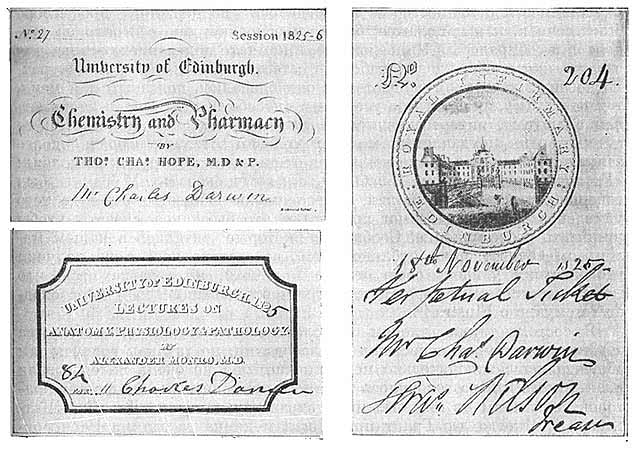 No. 27 Session 1825-6
University of Edinburgh.
Chemistry and Pharmacy
BY
THOs. CHAs. HOPE, M.D & P.
Mr Charles Darwin
UNIVERSITY OF EDINBURGH, 1825
LECTURES ON
ANATOMY, PHYSIOLOGY & PATHOLOGY,
BY
ALEXANDER MONRO, M.D.
84
Charles Darwin
No. 204.
ROYAL INFIRMARY
EDINBURGH
18th November 1825
Perpetual Ticket
Mr Chas. Darwin
Wilson
Treasr